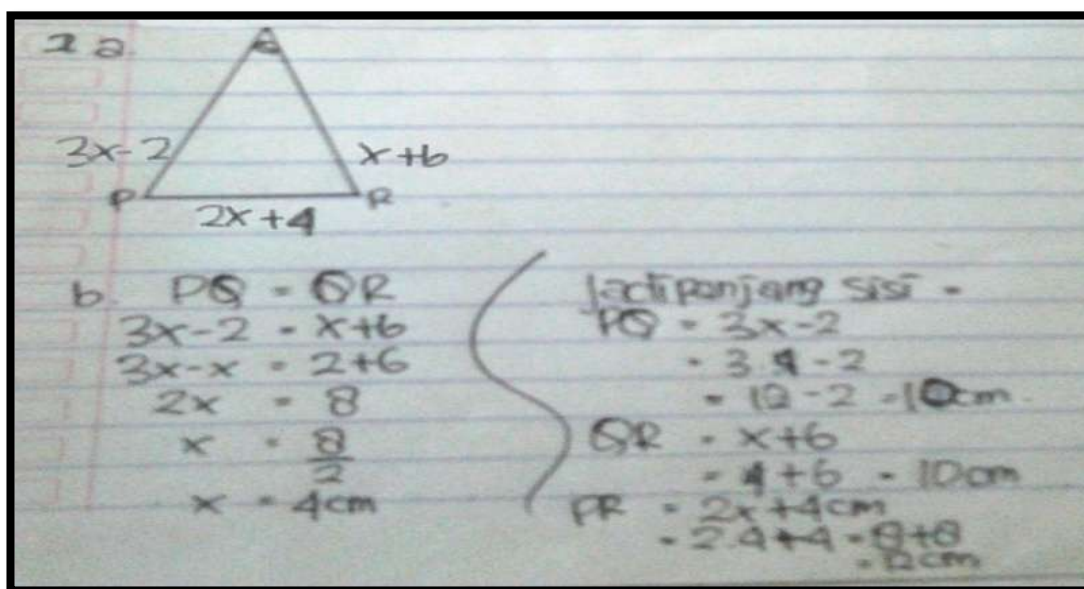 1 a
Q
3x-2
x+6
P
R
2x+4
b. PQ = QR
3x-2 = x+6
3x-x = 2+6
2x = 8
x = 8/2
x = 4cm
Jadi panjang sisi =
PQ = 3x-2
= 3.4-2
= 12-2 = 10cm.
QR = x+6
= 4+6 = 10cm
PR = 2x+4cm
= 2.4+4 = 8+8
= 12cm